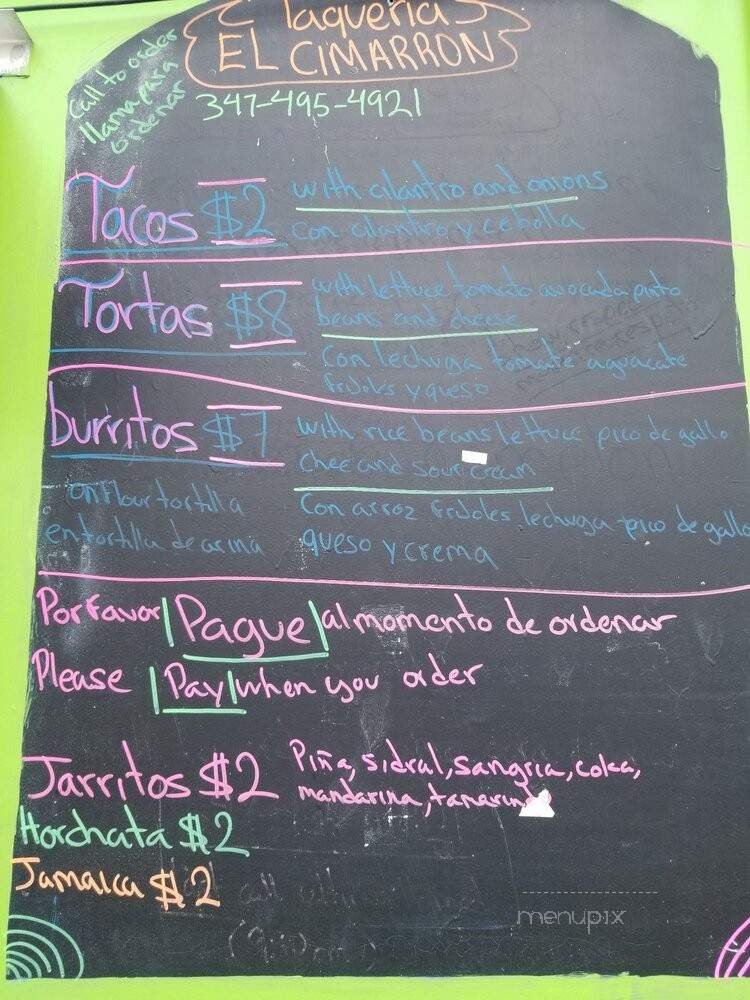 Taqueria
EL CIMARRON
Call to order
llama para
ordenar
347-495-4921
Tacos $2 with cilantro and onions
con cilantro y cebolla
Tortas $8 with lettuce tomato avocada pinto
beans and cheese
Con lechuga tomate aguacate
frijoles y queso
burritos $7 with rice beans lettuce pico de gallo
chee and sour cream
on flour tortilla
en tortilla de arina
Con arroz frijoles lechuga pico de gallo
queso y crema
Por Favor Pague al momento de ordenar
Please Pay when you order
Jarritos $2 Piña, sidral, sangria, coka,
mandarina, tamarindo
Horchata $2
Jamaica $2
menupix